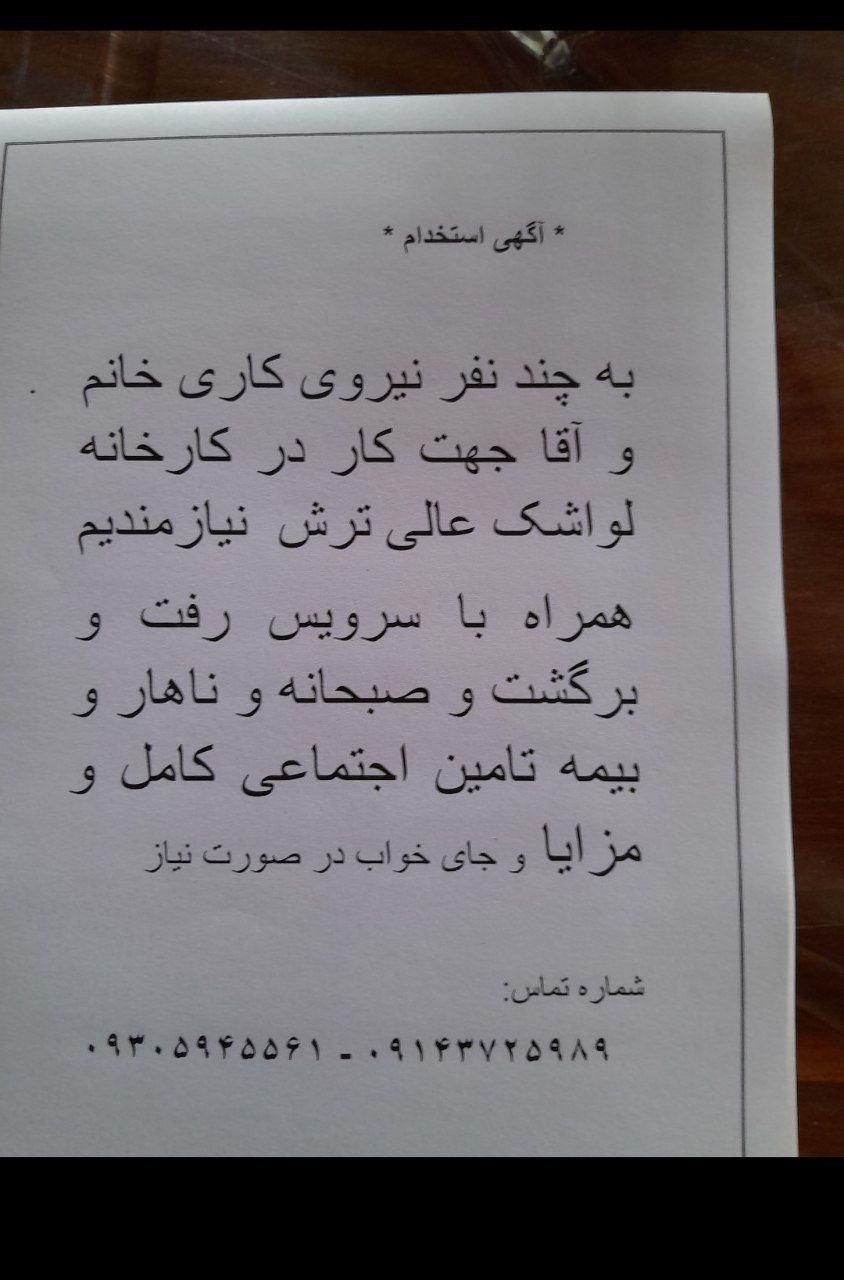 * آگهی استخدام *
به چند نفر نیروی کاری خانم
و آقا جهت کار در کارخانه
لواشک عالی ترش نیازمندیم
همراه با سرویس رفت و
برگشت و صبحانه و ناهار و
بیمه تامین اجتماعی کامل و
مزایا و جای خواب در صورت نیاز
شماره تماس:
۰۹۱۴۳۷۲۵۹۸۹ - ۰۹۳۰۵۹۴۵۵۶۱